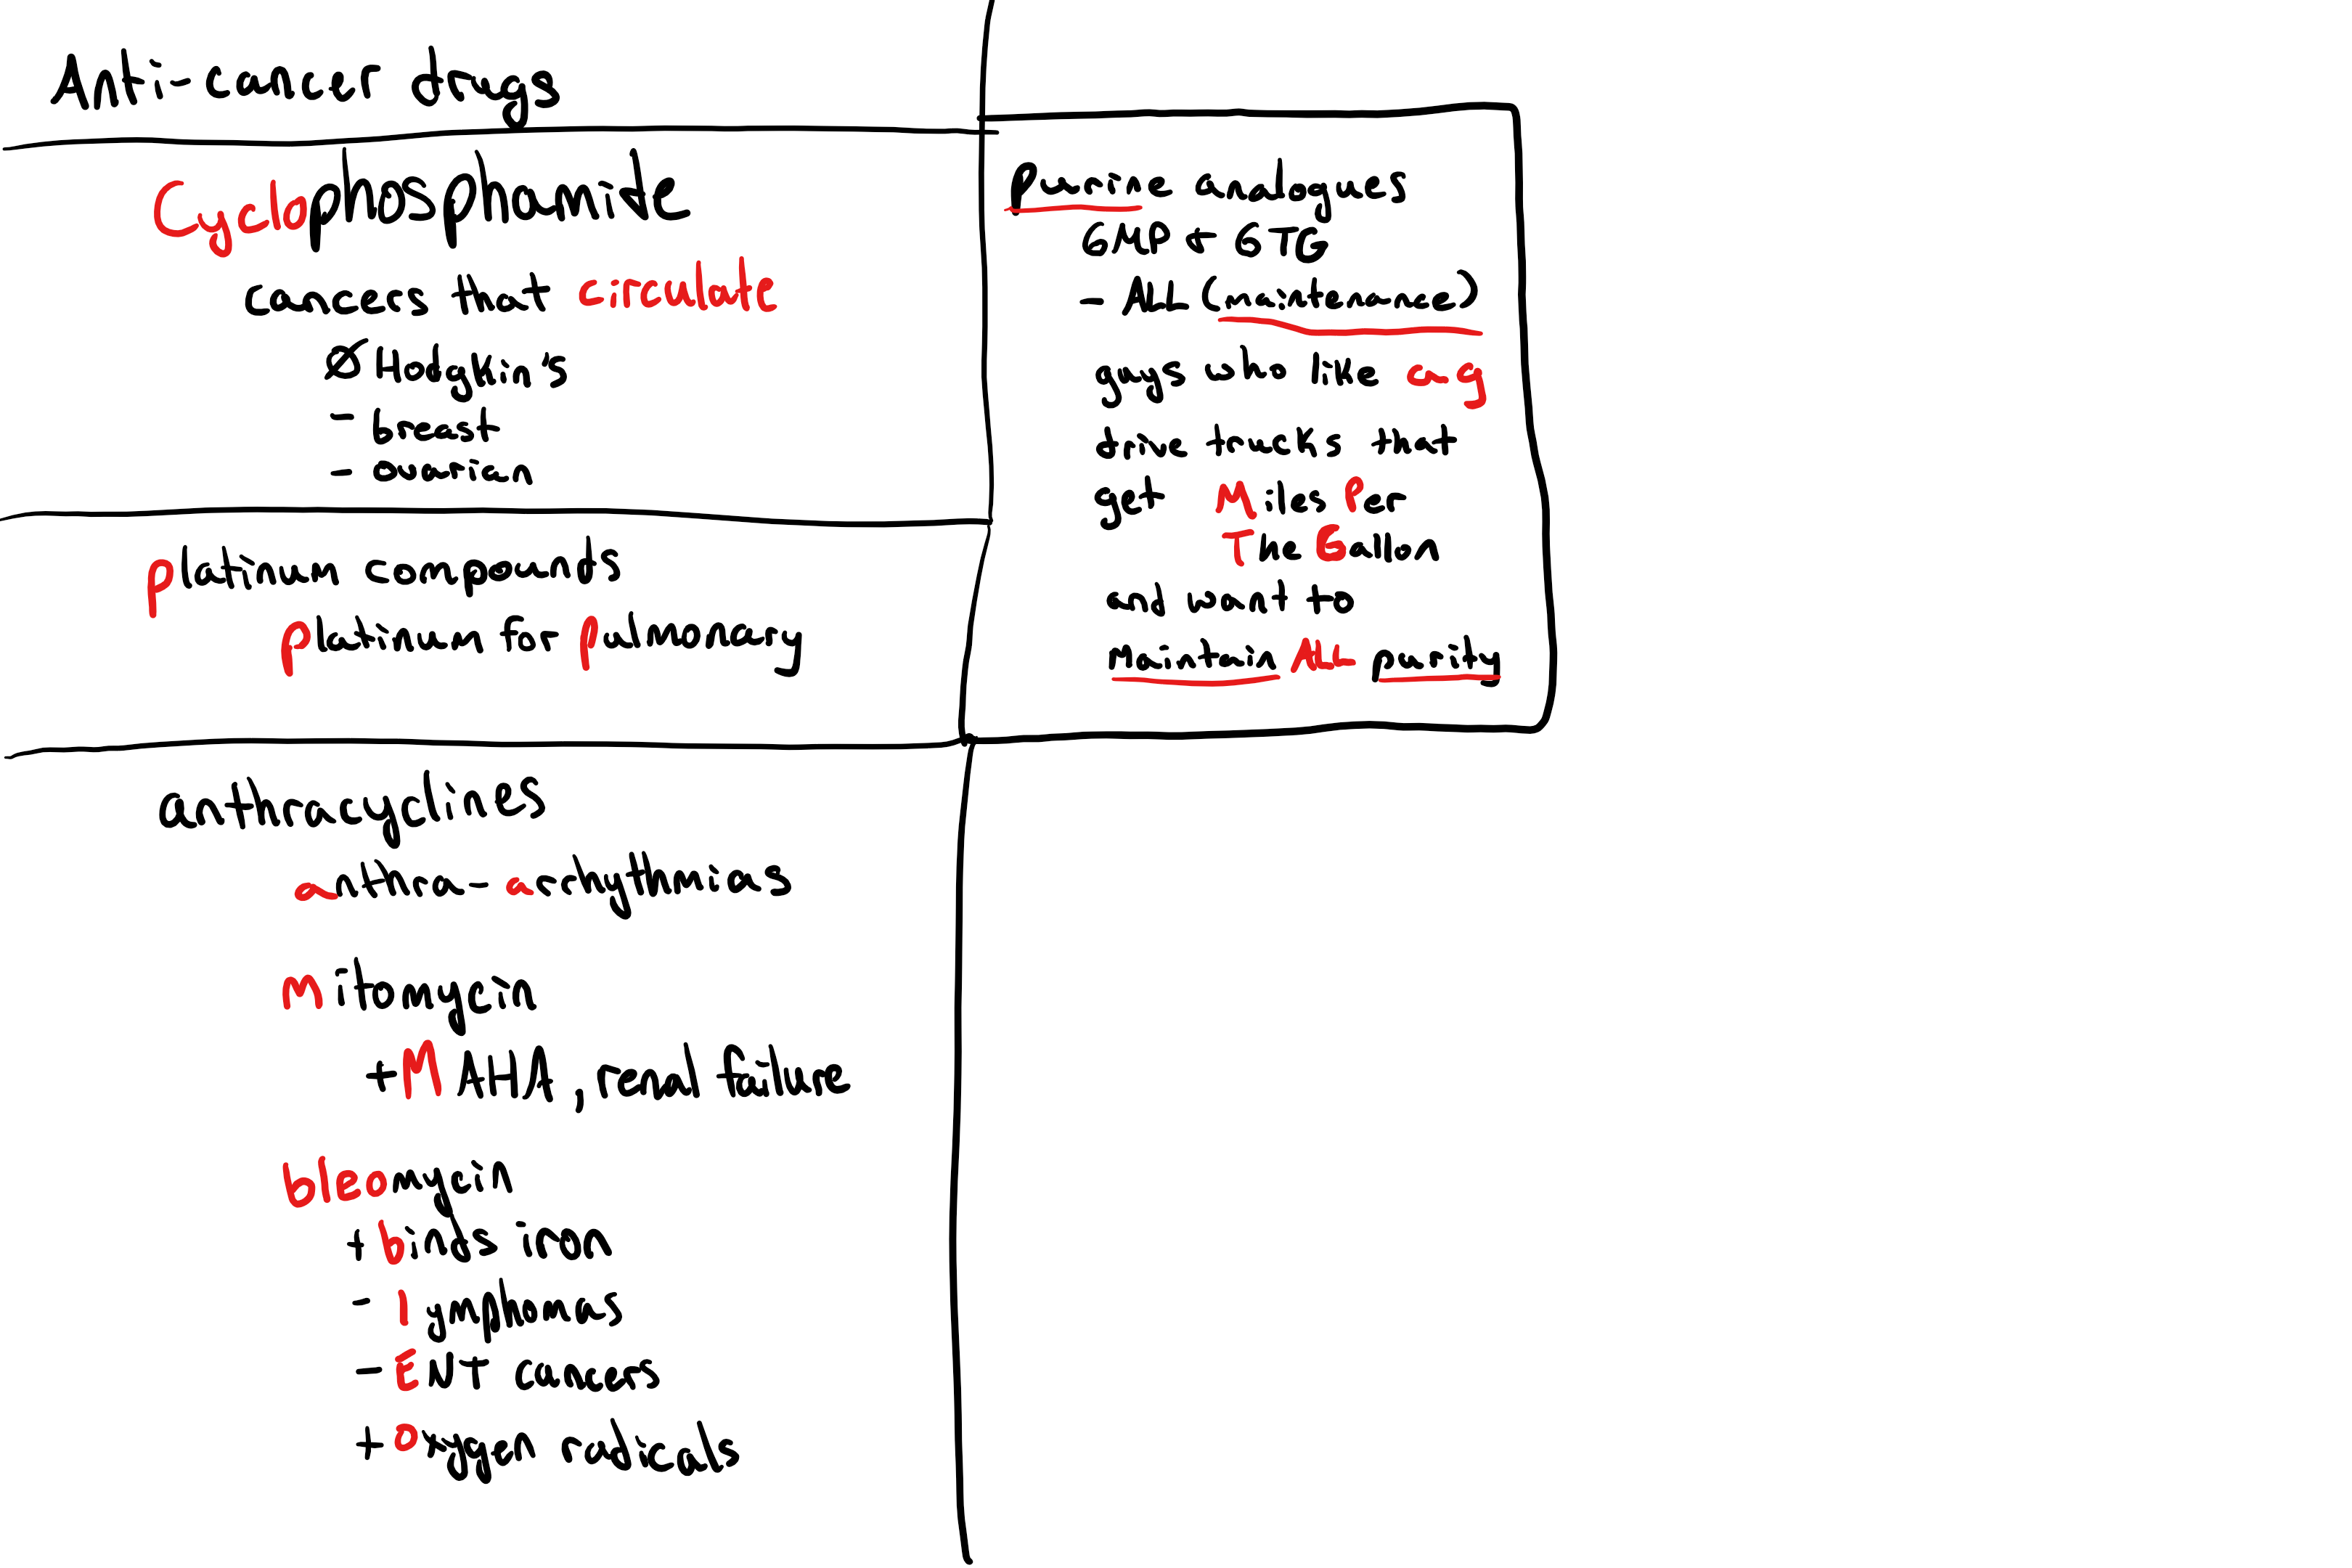 Anti-cancer drugs
Cyclophosphamide
cancers that circulate
Ø Hodgkin's
- breast
- ovarian
platinum compounds
platinum for pulmonary
anthracyclines
anthra- arhythmias
Mitomycin
+ MAHA, renal failure
bleomycin
+ binds iron
- lymphomas
- ENT cancers
+ Oxygen radicals
Purine analogues
6MP + 6TG
- ALL (maintenance)
guys who like
drive trucks that
get Miles Per
The Gallon
and want to
Maintain ALL purity